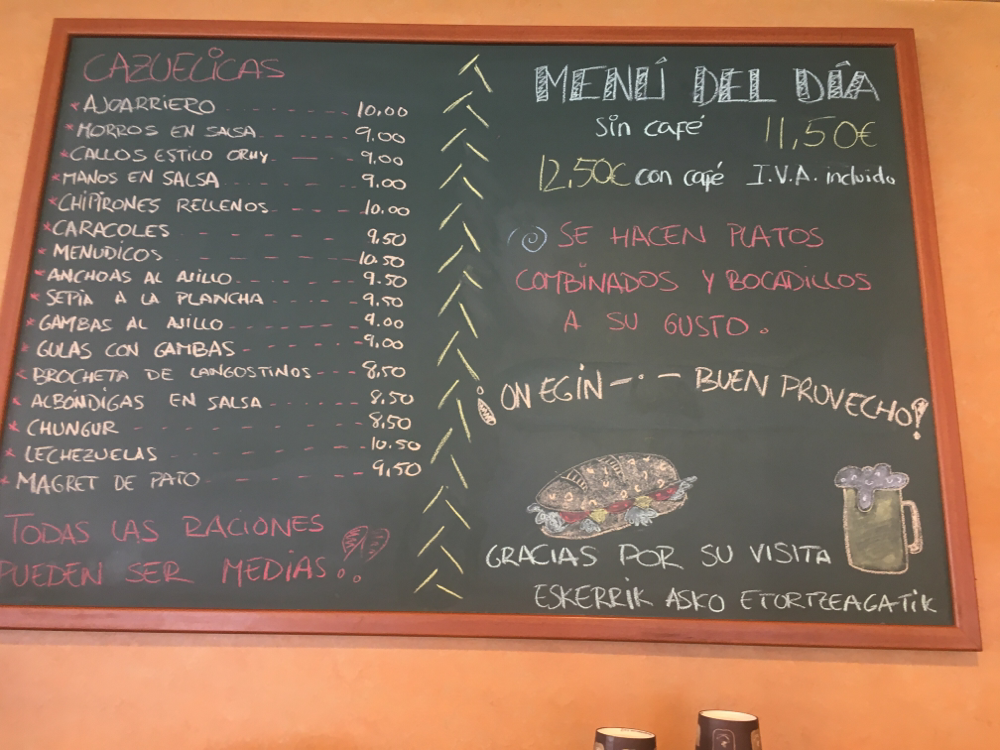 CAZUELICAS
* AJOARRIERO 10,00
* MORROS EN SALSA 9.00
* CALLOS ESTILO ORHY 9,00
* MANOS EN SALSA 9.00
* CHIPIRONES RELLENOS 10.00
* CARACOLES 9,50
* MENUDICOS 10.50
* ANCHOAS AL AJILLO 9.50
* SEPIA A LA PLANCHA 9,50
* GAMBAS AL AJILLO 9.00
* GULAS CON GAMBAS 9,00
* BROCHETA DE LANGOSTINOS 8,50
* ALBÓNDIGAS EN SALSA 8,50
* CHUNGUR 8,50
* LECHEZUELAS 10.50
* MAGRET DE PATO 9,50
TODAS LAS RACIONES
PUEDEN SER MEDIAS..!!
MENÚ DEL DÍA
Sin café 11,50€
12,50€ con café I.V.A. incluido
SE HACEN PLATOS
COMBINADOS Y BOCADILLOS
A SU GUSTO.
¡ON EGIN -·- BUEN PROVECHO!
GRACIAS POR SU VISITA
ESKERRIK ASKO ETORTZEAGATIK